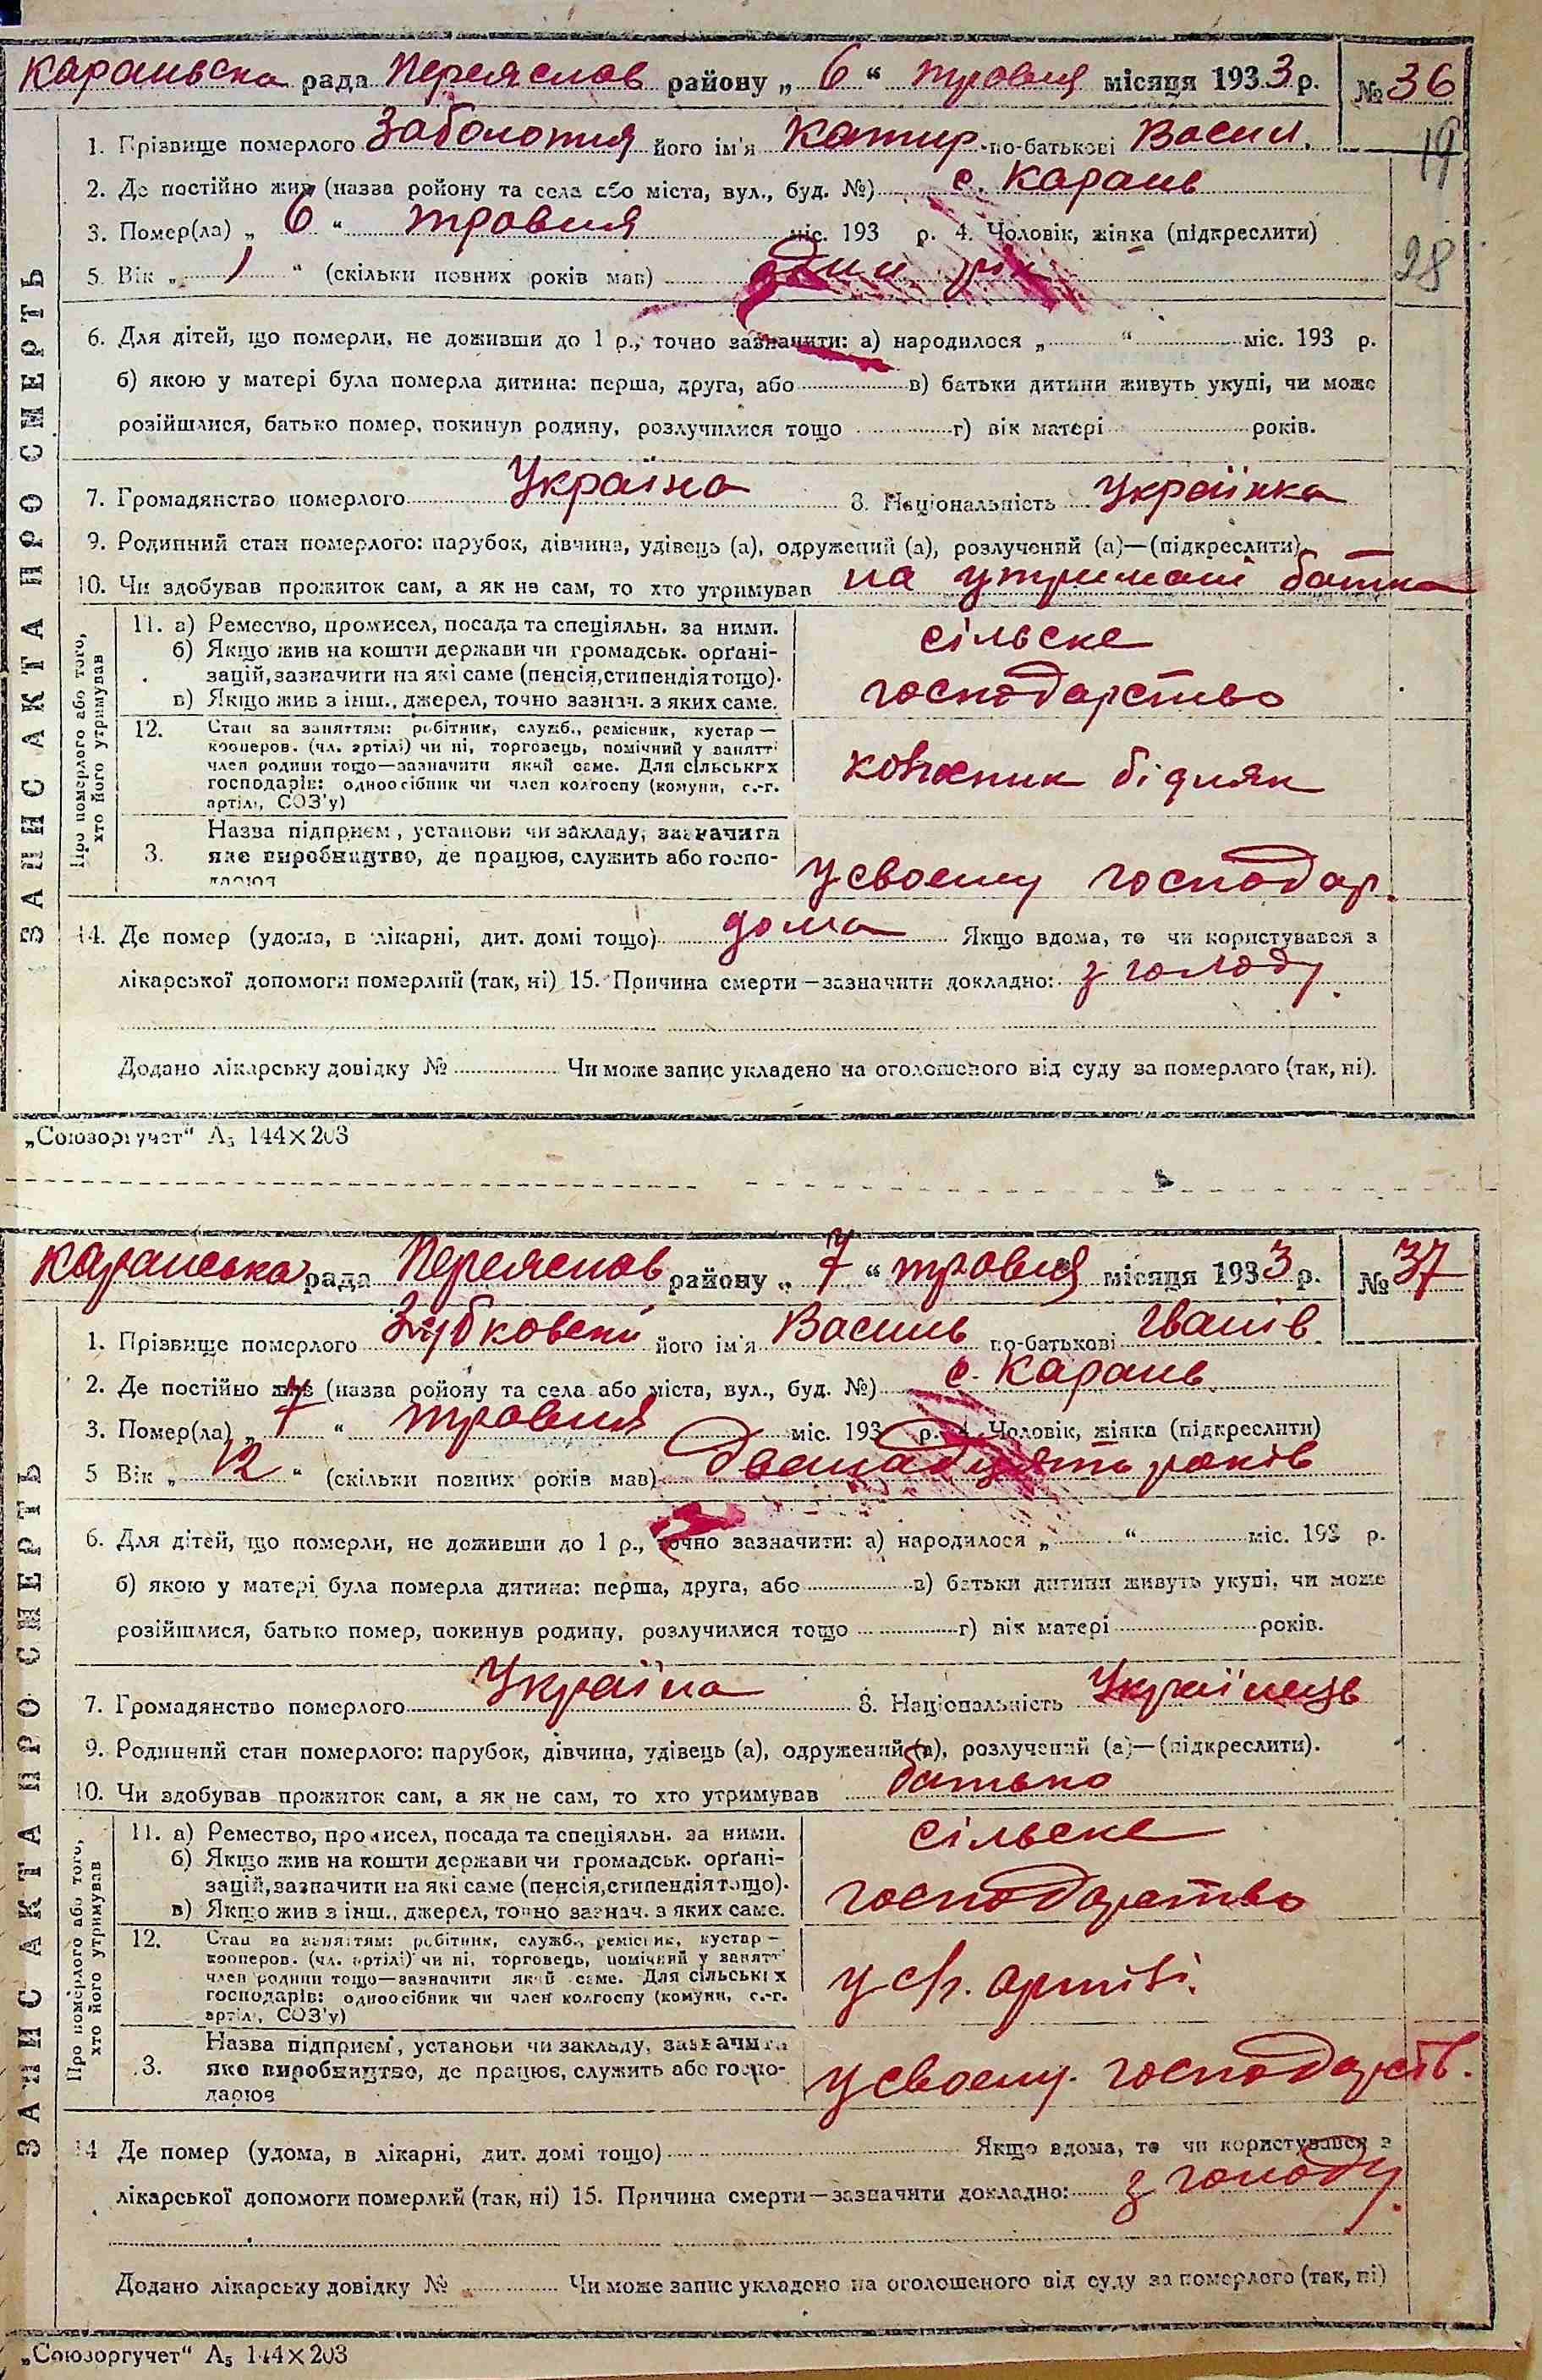 Караньська рада Переяслов району „ 6 “ травня місяця 1933 р. № 36
1. Прізвище померлого Заболотня його ім'я Катир. по-батькові Васил.
19
2. Де постійно жив (назва ройону та села або міста, вул., буд. №) с. Карань
3. Помер(ла) „ 6 “ травня міс. 193 р. 4. Чоловік, жінка (підкреслити)
28
5. Вік „ 1 “ (скільки повних років мав) один рік
6. Для дітей, що померли, не доживши до 1 р., точно зазначити: а) народилося „ “ міс. 193 р.
б) якою у матері була померла дитина: перша, друга, або в) батьки дитини живуть укупі, чи може
розійшлися, батько помер, покинув родину, розлучилися тощо г) вік матері років.
7. Громадянство померлого Україна 8. Національність Українка
9. Родинний стан померлого: парубок, дівчина, удівець (а), одружений (а), розлучений (а)—(підкреслити)
10. Чи здобував прожиток сам, а як не сам, то хто утримував на утримані батка
ЗАПИС АКТА ПРО СМЕРТЬ
Про померлого або того, хто його утримував
11. а) Ремество, промисел, посада та спеціяльн. за ними.
б) Якщо жив на кошти держави чи громадськ. орґані-
зацій, зазначити на які саме (пенсія, стипендія тощо).
в) Якщо жив з інш. джерел, точно зазнач. з яких саме.
сільське
господарство
12. Стан за заняттям: робітник, служб., ремісник, кустар —
кооперов. (чл. артілі) чи ні, торговець, помічний у занятт
член родини тощо—зазначити який саме. Для сільських
господарів: одноосібник чи член колгоспу (комуни, с.-г.
артілі, СОЗ'у)
бідняк
3. Назва підприєм, установи чи закладу, зазначити
яке виробництво, де працює, служить або госпо-
дарює
у своему господар.
14. Де помер (удома, в лікарні, дит. домі тощо) дома Якщо вдома, то чи користувався з
лікарської допомоги померлий (так, ні) 15. Причина смерти—зазначити докладно: з голоду.
Додано лікарську довідку № Чи може запис укладено на оголошеного від суду за померлого (так, ні).
„Союзоргучет“ А₅ 144×203
Караньська рада Переяслов району „ 7 “ травня місяця 1933 р. № 37
1. Прізвище померлого Зубковський його ім'я Василь по-батькові Іванів
2. Де постійно жив (назва ройону та села або міста, вул., буд. №) с. Карань
3. Помер(ла) „ 7 “ травня міс. 193 р. 4. Чоловік, жінка (підкреслити)
5 Вік „ 12 “ (скільки повних років мав) дванадцять років
6. Для дітей, що померли, не доживши до 1 р., точно зазначити: а) народилося „ “ міс. 193 р.
б) якою у матері була померла дитина: перша, друга, або в) батьки дитини живуть укупі, чи може
розійшлися, батько помер, покинув родину, розлучилися тощо г) вік матері років.
7. Громадянство померлого Україна 8. Національність Українець
9. Родинний стан померлого: парубок, дівчина, удівець (а), одружений (а), розлучений (а)—(підкреслити).
10. Чи здобував прожиток сам, а як не сам, то хто утримував батько
ЗАПИС АКТА ПРО СМЕРТЬ
Про померлого або того, хто його утримував
11. а) Ремество, промисел, посада та спеціяльн. за ними.
б) Якщо жив на кошти держави чи громадськ. орґані-
зацій, зазначити на які саме (пенсія, стипендія тощо).
в) Якщо жив з інш. джерел, точно зазнач. з яких саме.
сільське
господарство
12. Стан за заняттям: робітник, служб., ремісник, кустар —
кооперов. (чл. артілі) чи ні, торговець, помічний у занятт
член родини тощо—зазначити який саме. Для сільських
господарів: одноосібник чи член колгоспу (комуни, с.-г.
артіл, СОЗ'у)
у артілі.
3. Назва підприєм, установи чи закладу, зазначити
яке виробництво, де працює, служить або госпо-
дарює
у своему господарств.
14 Де помер (удома, в лікарні, дит. домі тощо) Якщо вдома, то чи користувався з
лікарської допомоги померлий (так, ні) 15. Причина смерти—зазначити докладно: з голоду.
Додано лікарську довідку № Чи може запис укладено на оголошеного від суду за померлого (так, ні)
„Союзоргучет“ А₅ 144×203